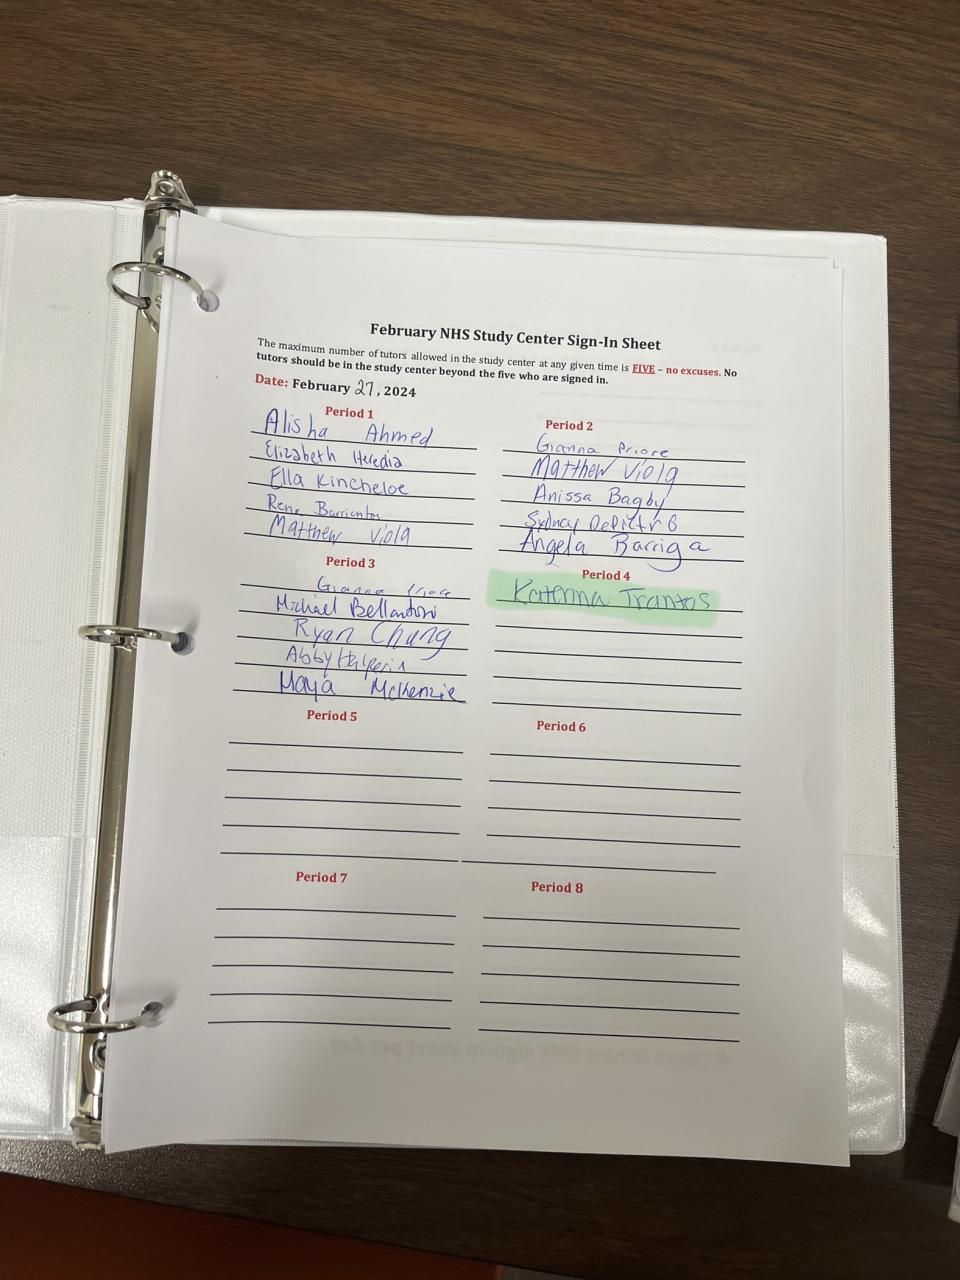 February NHS Study Center Sign-In Sheet
The maximum number of tutors allowed in the study center at any given time is FIVE – no excuses. No
tutors should be in the study center beyond the five who are signed in.
Date: February 27, 2024
Period 1
Alisha Ahmed
Elizabeth Heredia
Ella Kincheloe
Rene Barrientos
Matthew Viola
Period 2
Gianna Priore
Matthew Viola
Anissa Bagby
Sydney
Angela Barriga
Period 3
Gianna Priore
Michael Bellantoni
Ryan Chung
Abby Halperin
Maya McKenzie
Period 4
Katerina Trantos
Period 5
Period 6
Period 7
Period 8